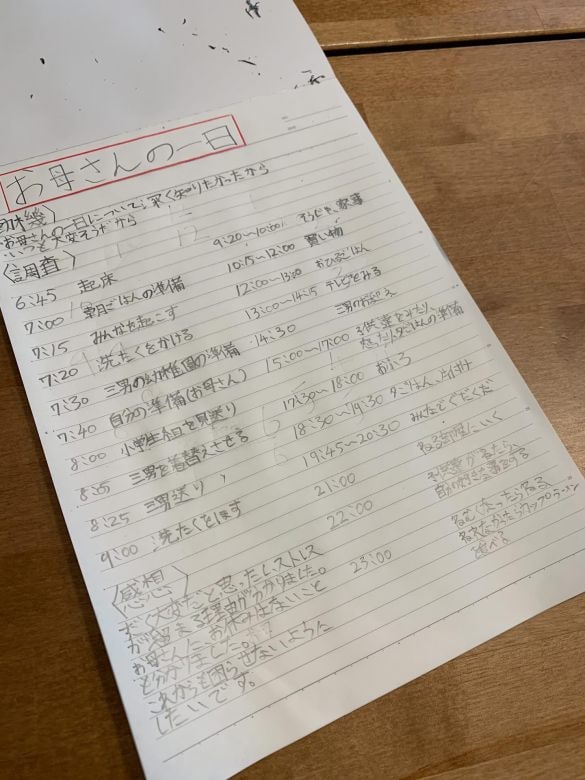 お母さんの一日
〈動機〉
お母さんの一日について、深く知りたかったから
いつも大変そうだから
〈調査〉
6:45 起床
7:00 朝ごはんの準備
7:15 みんなを起こす
7:20 洗たくをかける
7:30 三男の幼稚園の準備
7:40 自分の準備(お母さん)
8:00 小学生組を見送り
8:05 三男を着替えさせる
8:25 三男送り
9:00 洗たくをほす
9:20〜10:00 そうじや、家事
10:15〜12:00 買い物
12:00〜13:00 おひるごはん
13:00〜14:15 テレビをみる
14:30 三男のお迎え
15:00〜17:00 子供達をみたり、
夕ごはんの準備
17:30〜18:00 おふろ
18:30〜19:30 夕ごはん、片付け
19:45〜20:30 みんなでぐだぐだ
21:00 ねる部屋にいく
22:00 子供達がねたら
自分の好きな事をする
23:00 ねむくなったらねる
ねむくなかったらカップラーメン
食べる
〈感想〉
すごく大変だと思ったし、ストレス
が留まる理由が分かりました。
お母さんに、お休みはないこと
と分かりました。
これからも困らせないように
したいです。